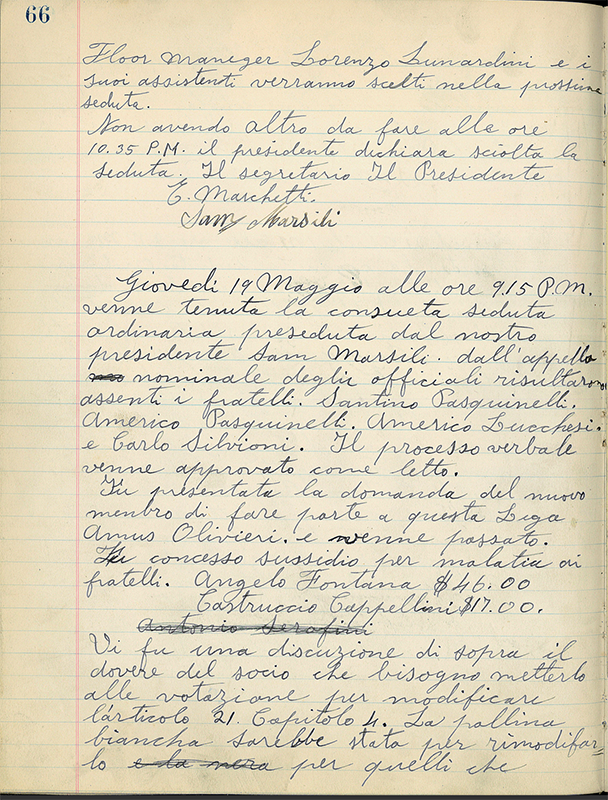 66
Floor maneger Lorenzo Lunardini e i
suoi assistenti verranno scelti nella prossima
seduta.
Non avendo altro da fare alle ore
10.35 P.M. il presidente dichiara sciolta la
seduta. Il segretario Il Presidente
E. Marchetti.
Sam Marsili
Giovedi 19 Maggio alle ore 9.15 P.M.
venne tenuta la consueta seduta
ordinaria preseduta dal nostro
presidente Sam Marsili. dall'appello
nominale deglie officiali risultarono
assenti i fratelli. Santino Pasquinelli.
Americo Pasquinelli. Americo Lucchesi.
e Carlo Silvioni. Il processo verbale
venne approvato come letto.
Fu presentata la domanda del nuovo
menbro di fare parte a questa Lega
Amus Olivieri. e venne passato.
Fu concesso sussidio per malatia ai
fratelli. Angelo Fontana $46.00
Castruccio Cappellini $17.00.
Antonio Serafini
Vi fu una discuzione di sopra il
dovere del socio che bisogno metterlo
alle votazione per modificare
l'articolo 21. Capitolo 4. La pallina
biancha sarebbe stata per rimodifar=
lo e la nera per quelli che